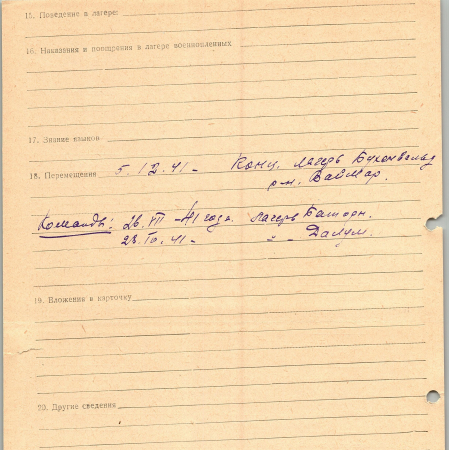 15. Поведение в лагере:
16. Наказания и поощрения в лагере военнопленных
17. Знание языков
18. Перемещения 5. 12. 41 - Конц. лагерь Бухенвальд
р-н. Ваймар.
Команды: 26. VII - 41 года. лагерь Баторн.
23. IV. 41 - " - Далум.
19. Вложения в карточку
20. Другие сведения